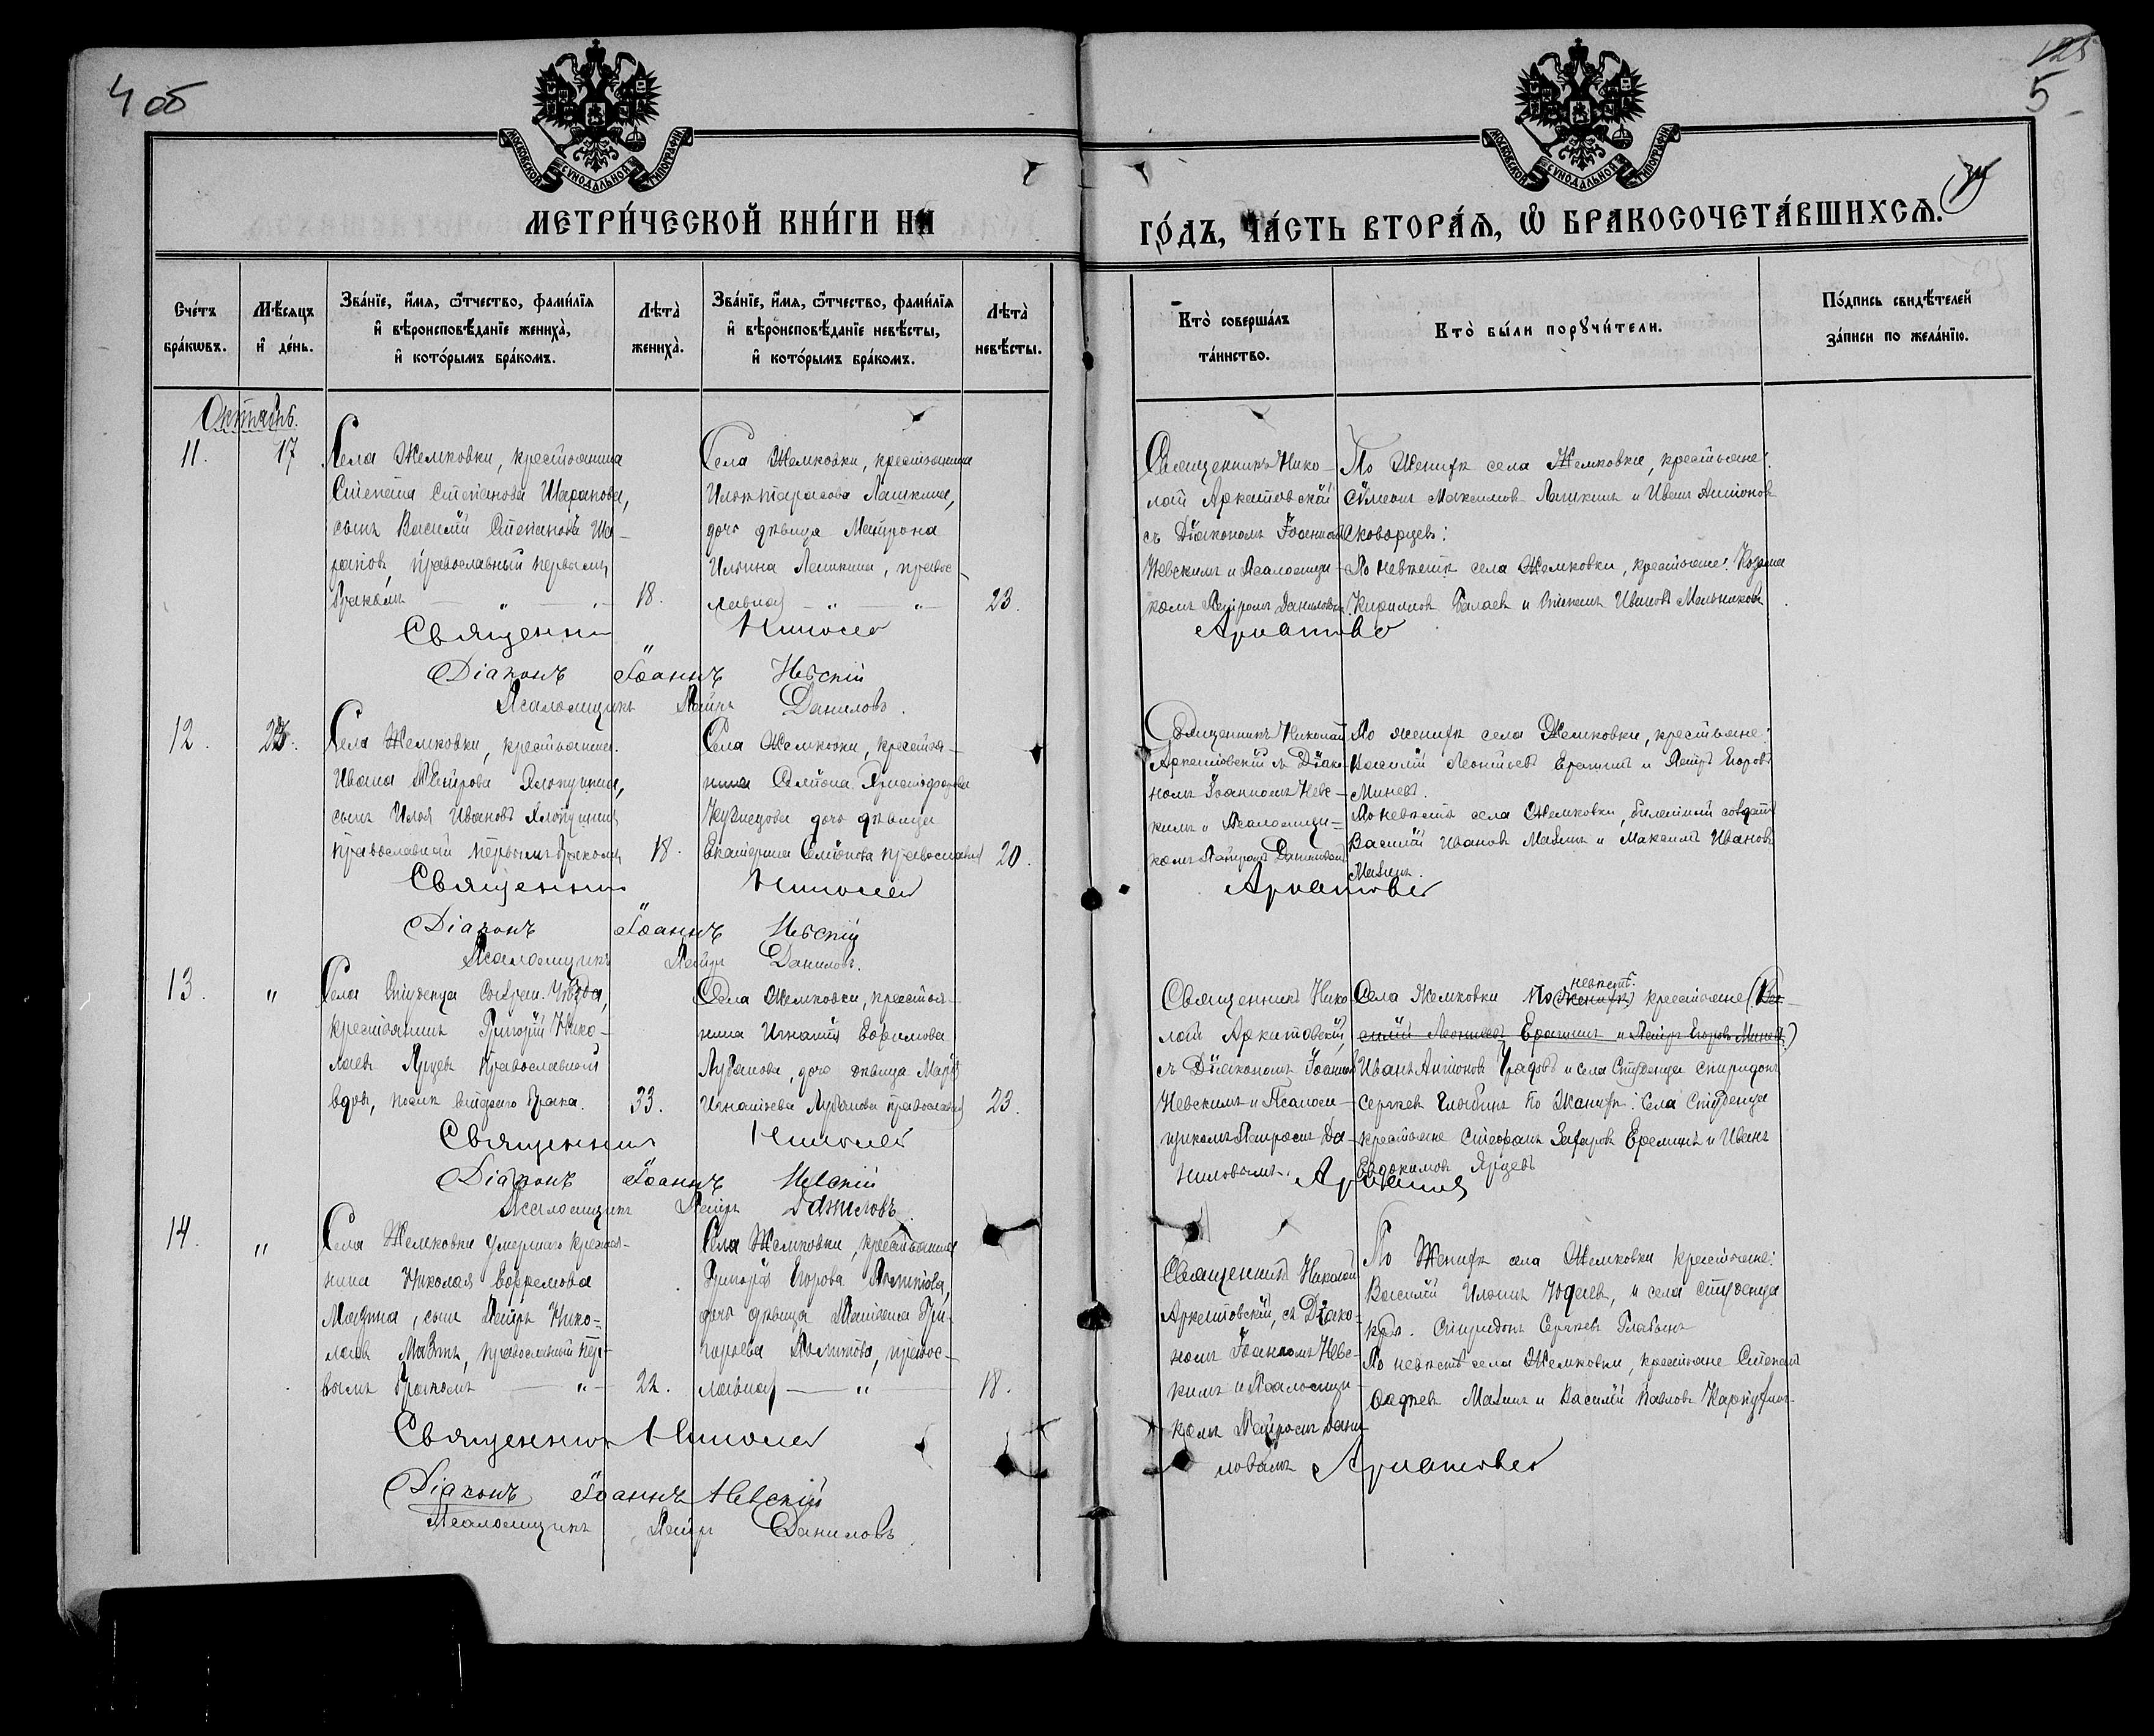 4 об
125
5
МОСКОВСКОЙ СУНОДАЛЬНОЙ ТИПОГРАФІИ
МОСКОВСКОЙ СУНОДАЛЬНОЙ ТИПОГРАФІИ
МЕТРИ́ЧЕСКОЙ КНИ́ГИ НА
ГО́ДЪ, ЧА́СТЬ ВТОРА́Ѧ, Ѡ БРАКОСОЧЕТА́ВШИХСѦ.
Сче́тъ бра́кѡвъ.
Мѣ́сѧцъ и де́нь.
Зва́нїе, и́мѧ, ѻ́тчество, фами́лїѧ
и вѣроисповѣ́данїе жениха̀,
и кото́рымъ бра́комъ.
Лѣта̀ жениха̀.
Зва́нїе, и́мѧ, ѻ́тчество, фами́лїѧ
и вѣроисповѣ́данїе невѣ́сты,
и кото́рымъ бра́комъ.
Лѣта̀ невѣ́сты.
Кто̀ соверша́лъ та́инство.
Кто̀ бы́ли порꙋчи́тели.
По́дпись свидѣ́телей
за́писи по жела́нїю.
Октябрь.
11.
17
Села Жемковки, крестьянина
Степана Степанова Шарапова,
сынъ Василій Степановъ Ша-
раповъ православный первымъ
бракомъ — „ —
18.
Села Жемковки, крестьянина
Ильи Тарасова Лашкина,
дочь дѣвица Матрона
Ильина Лашкина, правос-
лавная — „ —
23.
Священникъ Нико-
лай Аркатовскій
съ Діакономъ Іоанномъ
Невскимъ и Псаломщи-
комъ Петромъ Даниловымъ
По Женихѣ села Жемковки, крестьяне:
Сѵмеонъ Максимовъ Лашкинъ и Иванъ Антоновъ
Сковорцевъ:
По невѣстѣ села Жемковки, крестьяне: Козьма
Кириловъ Балаевъ и Степанъ Ивановъ Мельниковъ
Священникъ Николай Аркатовск
Діаконъ Іоаннъ Невскій
Псаломщикъ Петръ Даниловъ.
12.
23.
Села Жемковки, крестьянина
Ивана Петрова Хлопушина,
сынъ Илья Ивановъ Хлопушинъ
православный первымъ бракомъ
18.
Села Жемковки, крестья-
нина Семіона Христофорова
Кузнецова дочь дѣвица
Екатерина Семіонова православная
20.
Священникъ Николай
Аркатовскій съ Діако-
номъ Іоанномъ Невс-
кимъ и Псаломщи-
комъ Петромъ Даниловымъ
По женихѣ села Жемковки, крестьяне:
Василій Леонтьевъ Ерашинъ и Петръ Егоровъ
Миневъ.
По невѣстѣ села Жемковки, билетный солдатъ
Василій Ивановъ Мазинъ и Максимъ Ивановъ
Мазинъ.
Священникъ Николай Аркатовск
Діаконъ Іоаннъ Невскій
Псаломщикъ Петръ Даниловъ.
13.
„
Села Студенца Сызран. Уѣзда,
крестьянинъ Григорій Нико-
лаевъ Ярцевъ православный
вдов, послѣ втораго брака.
33.
Села Жемковки, крестья-
нина Игнатія Ефремова
Лубанова, дочь дѣвица Марѳа
Игнатьева Лубанова православная
23.
Священникъ Нико-
лай Аркатовскій,
съ Діакономъ Іоанномъ
Невскимъ и Псалом-
щикомъ Петромъ Да-
ниловымъ.
невѣстѣ.
Села Жемковки По (Женихѣ) крестьяне (Ва-
силій Леонтьевъ Ерашинъ и Петръ Егоровъ Миневъ)
Иванъ Антоновъ Градовъ и села Студенца Спиридонъ
Сергѣевъ Глыбинъ По Женихѣ: Села Студенца
крестьяне Стефанъ Захаровъ Ереминъ и Иванъ
Евдокимовъ Ярцевъ
Священникъ Николай
Діаконъ Іоаннъ Невскій
Псаломщикъ Петръ Даниловъ.
14.
„
Села Жемковки умершаго крестья-
нина Николая Ефремова
Мазина, сынъ Петръ Нико-
лаевъ Мазинъ, православный пер-
вымъ бракомъ — „ —
22.
Села Жемковки, крестьянина
Григорія Егорова
дочь дѣвица Гри-
горьева правос-
лавная — „ —
18.
Священникъ Николай
Аркатовскій, съ Діако-
номъ Іоанномъ Невс-
кимъ и Псаломщи-
комъ Петромъ Дани-
ловымъ
По Женихѣ села Жемковки крестьяне:
Василій Ильинъ Юдаевъ, и села Студенца
кр. Спиридонъ Сергѣевъ Глабинъ
По невѣстѣ села Жемковки, крестьяне Степанъ
Мазинъ и Василій Павловъ
Священникъ Николай Аркатовск
Діаконъ Іоаннъ Невскій
Псаломщикъ Петръ Даниловъ